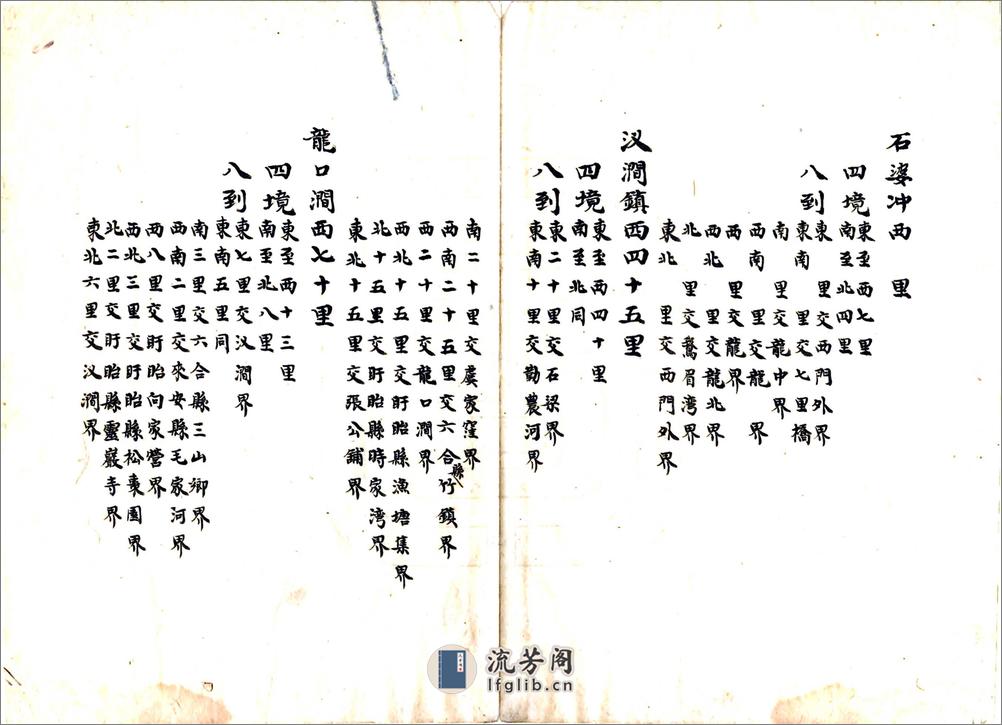 石婆冲西　里
四境東至西七里
南至北四里
八到東　里交西門外界
東南　里交七里橋
南　里交龍中界
西南　里交龍　界
西　里交龍界
西北　里交龍北界
北　里交鵞眉湾界
東北　里交西門外界
汊澗鎮西四十五里
四境東至西四十里
南至北同
八到東二十里交石梁界
東南十里交勸農河界
南二十里交虞家窪界
西南二十五里交六合縣竹鎮界
西二十里交龍口澗界
西北十五里交盱眙縣漁塘集界
北十五里交盱眙縣時家湾界
東北十五里交張公鋪界
龍口澗西七十里
四境東至西十三里
南至北八里
八到東七里交汊澗界
東南五里同
南三里交六合縣三山鄉界
西南二里交來安縣毛家河界
西八里交盱眙向家營界
西北三里交盱眙縣松棗園界
北二里交盱眙縣靈巖寺界
東北六里交汊澗界
流芳阁
lfglib.cn